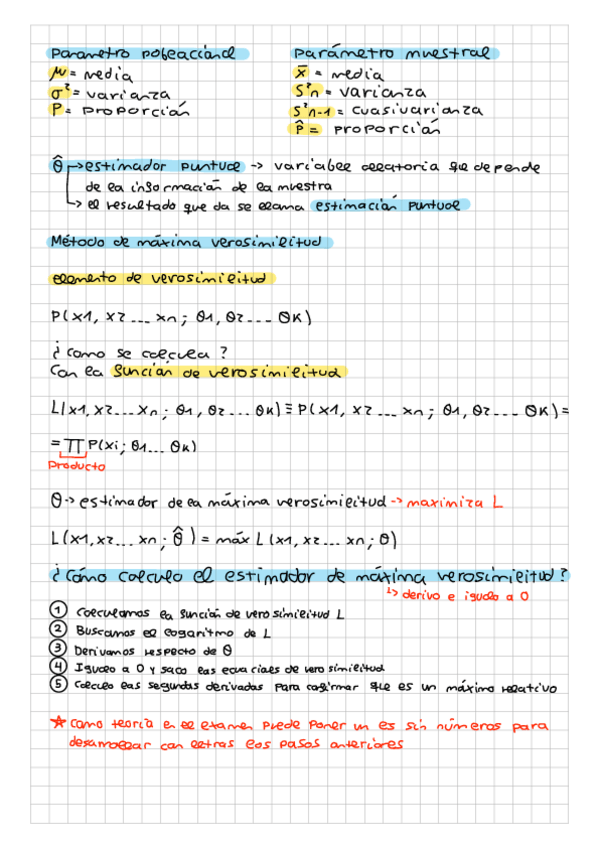 Parametro poblacional
μ = media
σ² = varianza
P = proporción
Parámetro muestral
x̄ = media
S²n = varianza
S²n-1 = cuasivarianza
P̂ = proporción
θ̂ → estimador puntual -> variable aleatoria que depende
de la información de la muestra
↳ el resultado que da se llama estimación puntual
Método de máxima verosimilitud
elemento de verosimilitud
P(x1, x2 ... xn ; θ1, θ2 ... θK)
¿Como se calcula ?
Con la función de verosimilitud
L(x1, x2 ... xn ; θ1, θ2 ... θK) ≡ P(x1, x2 ... xn ; θ1, θ2 ... θK) =
= ∏ P(xi ; θ1 ... θK)
Producto
θ -> estimador de la máxima verosimilitud -> maximiza L
L(x1, x2 ... xn ; θ̂) = máx L(x1, x2 ... xn ; θ)
¿Cómo calculo el estimador de máxima verosimilitud?
↳ derivo e igualo a 0
1 Calculamos la función de verosimilitud L
2 Buscamos el logaritmo de L
3 Derivamos respecto de θ
4 Igualo a 0 y saco las ecuaciones de verosimilitud
5 Calculo las segundas derivadas para confirmar que es un máximo relativo
★ Como teoría en el examen puede poner un es sin números para
desarrollar con letras los pasos anteriores